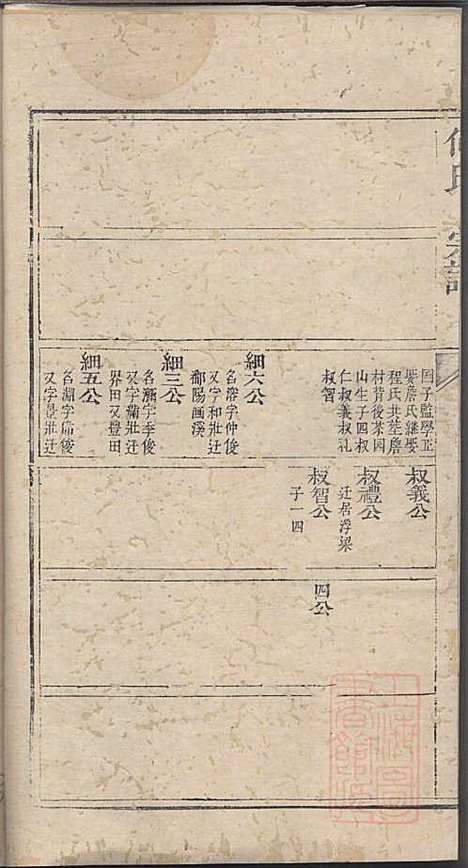 國子監學正
娶詹氏繼娶
程氏共塟詹
村背後茶園
山生子四叔
仁叔義叔礼
叔智
細六公
名濬字仲俊
又字和壯迁
鄱陽画溪
細三公
名灝字季俊
又字壯迁
界田又豊田
細五公
名湖字俊
又字景壯迁
叔義公
叔禮公
迁居浮梁
叔智公
子一四
四公